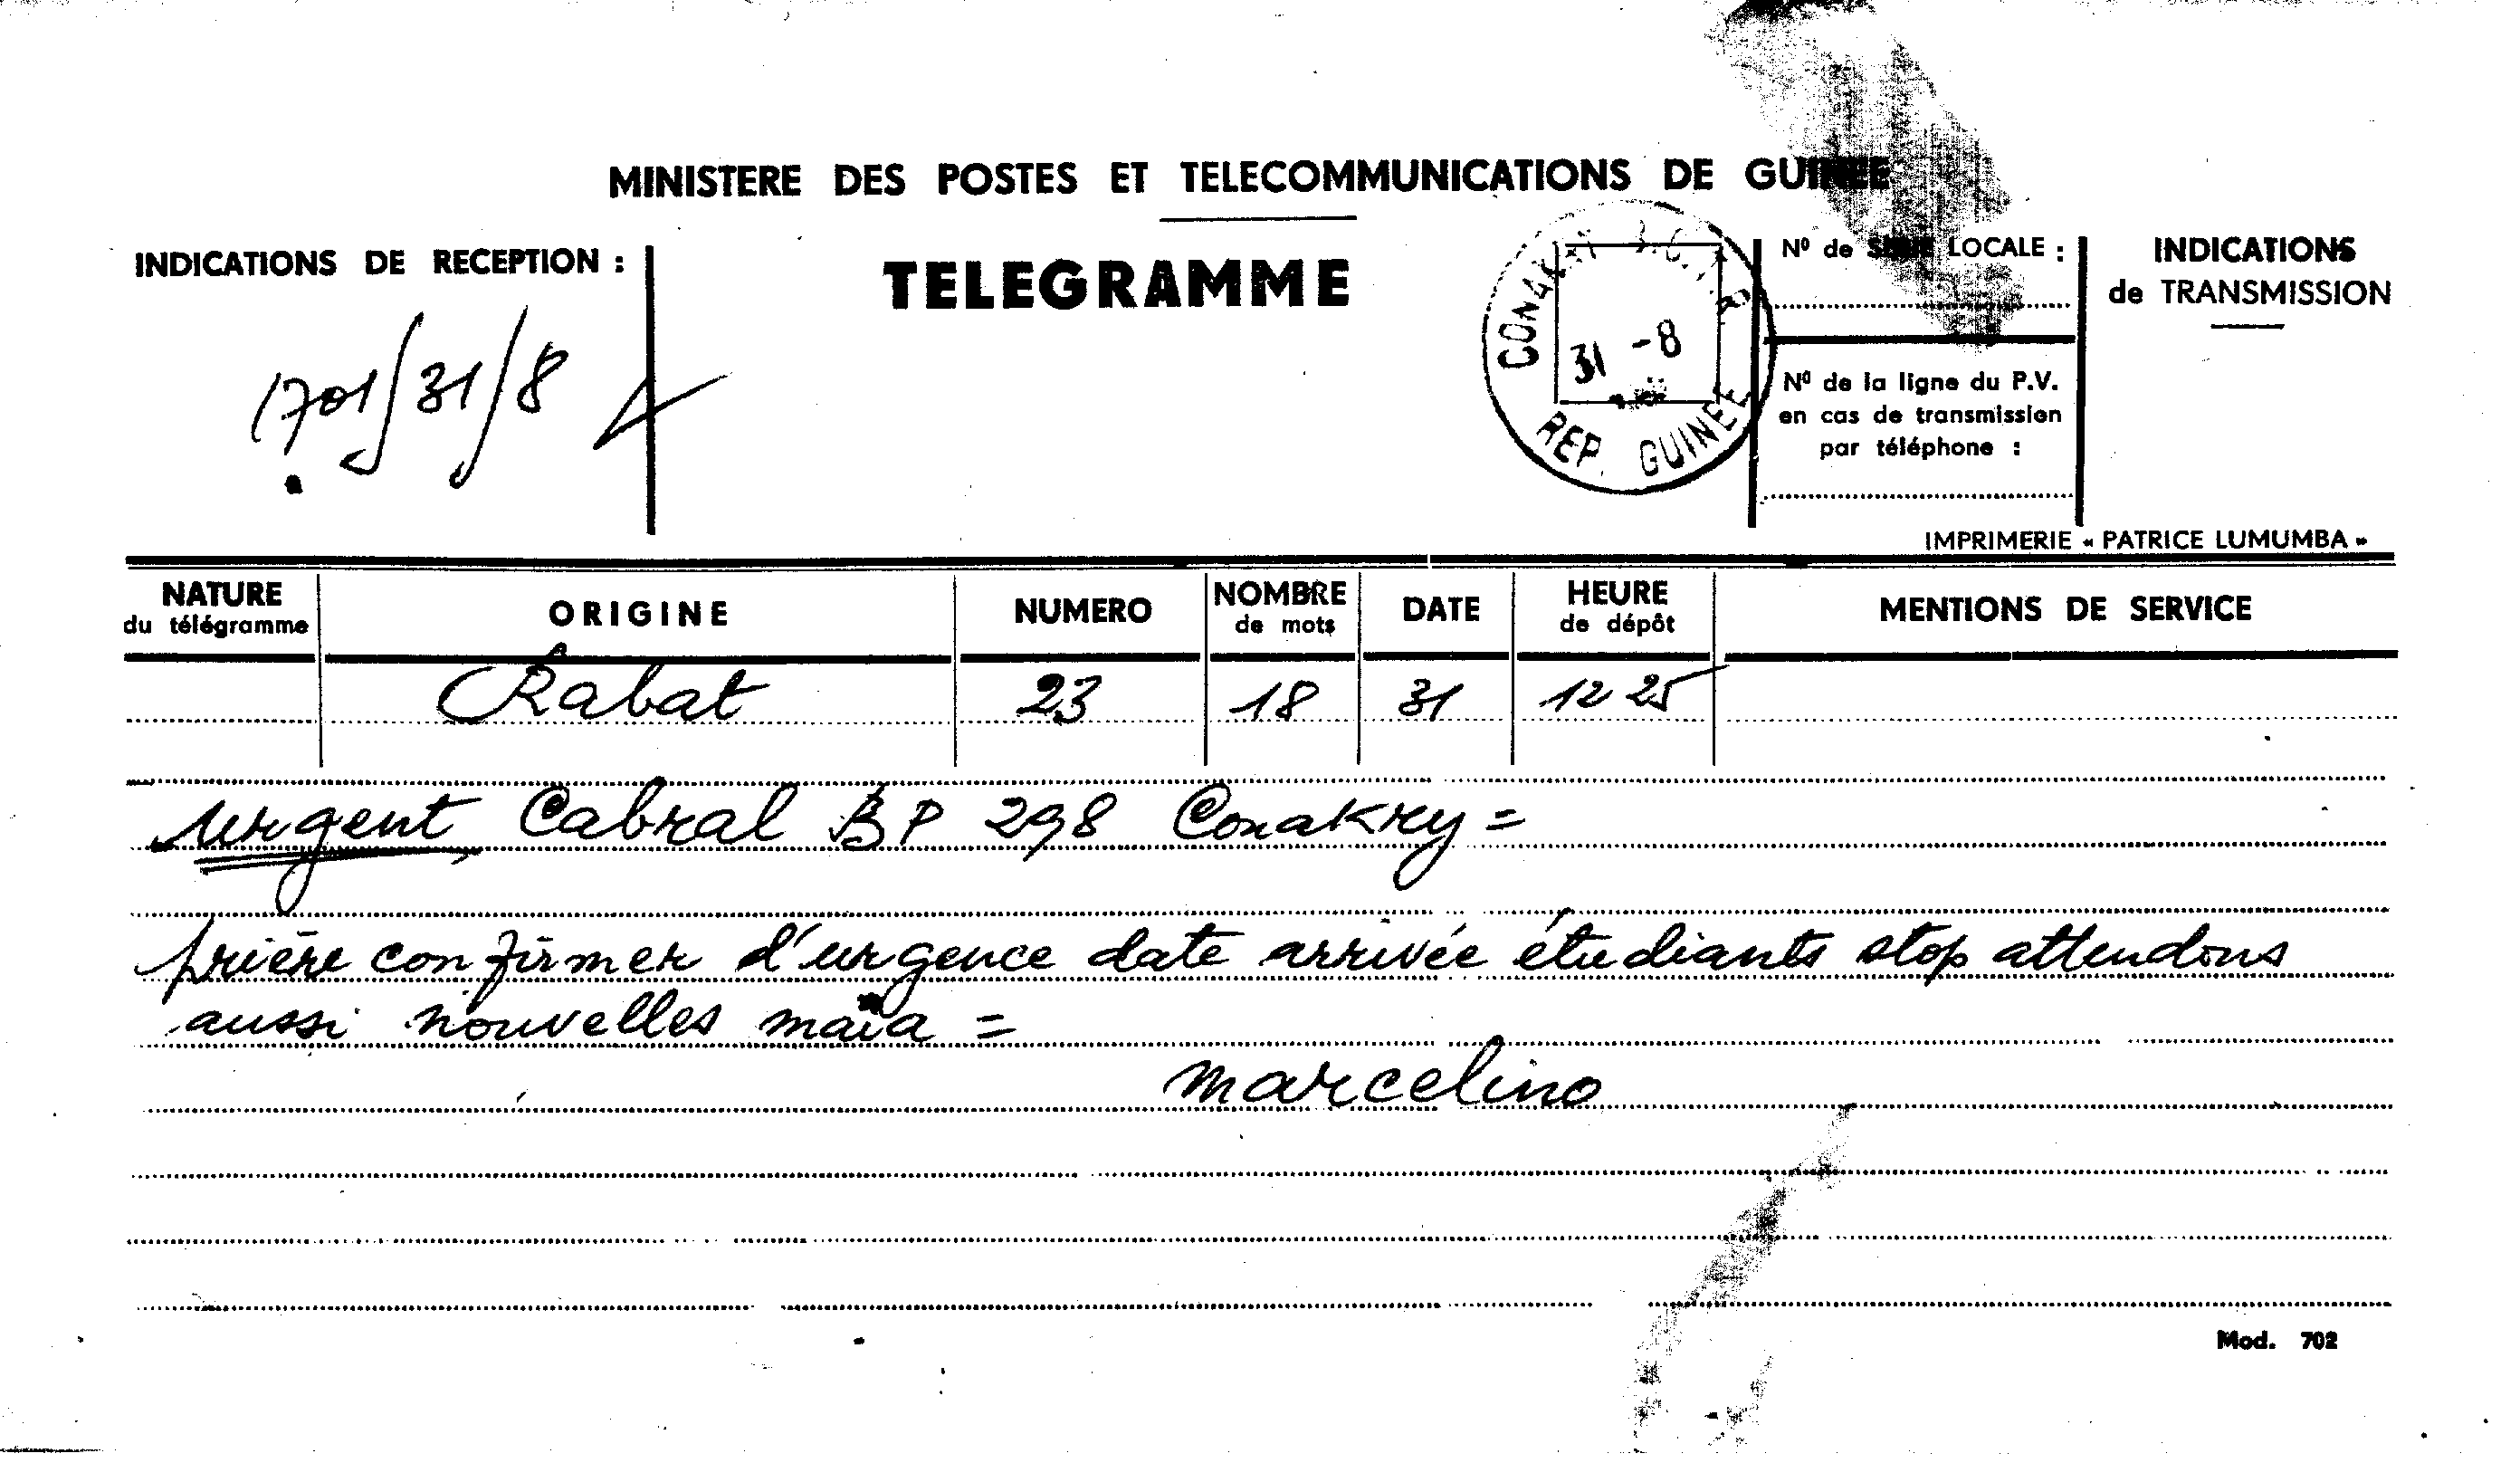 MINISTERE DES POSTES ET TELECOMMUNICATIONS DE GUINEE
INDICATIONS DE RECEPTION :
1701/31/8
TELEGRAMME
CONAKRY
31 -8
REP. GUINEE
Nº de SERIE LOCALE :
Nº de la ligne du P.V.
en cas de transmission
par téléphone :
INDICATIONS
de TRANSMISSION
IMPRIMERIE « PATRICE LUMUMBA »
NATURE
du télégramme
ORIGINE
NUMERO
NOMBRE
de mots
DATE
HEURE
de dépôt
MENTIONS DE SERVICE
Rabat 23 18 31 12 25
urgent, Cabral BP 298 Conakry =
prière confirmer d'urgence date arrivée étudiants stop attendons
aussi nouvelles maïa =
marcelino
Mod. 702